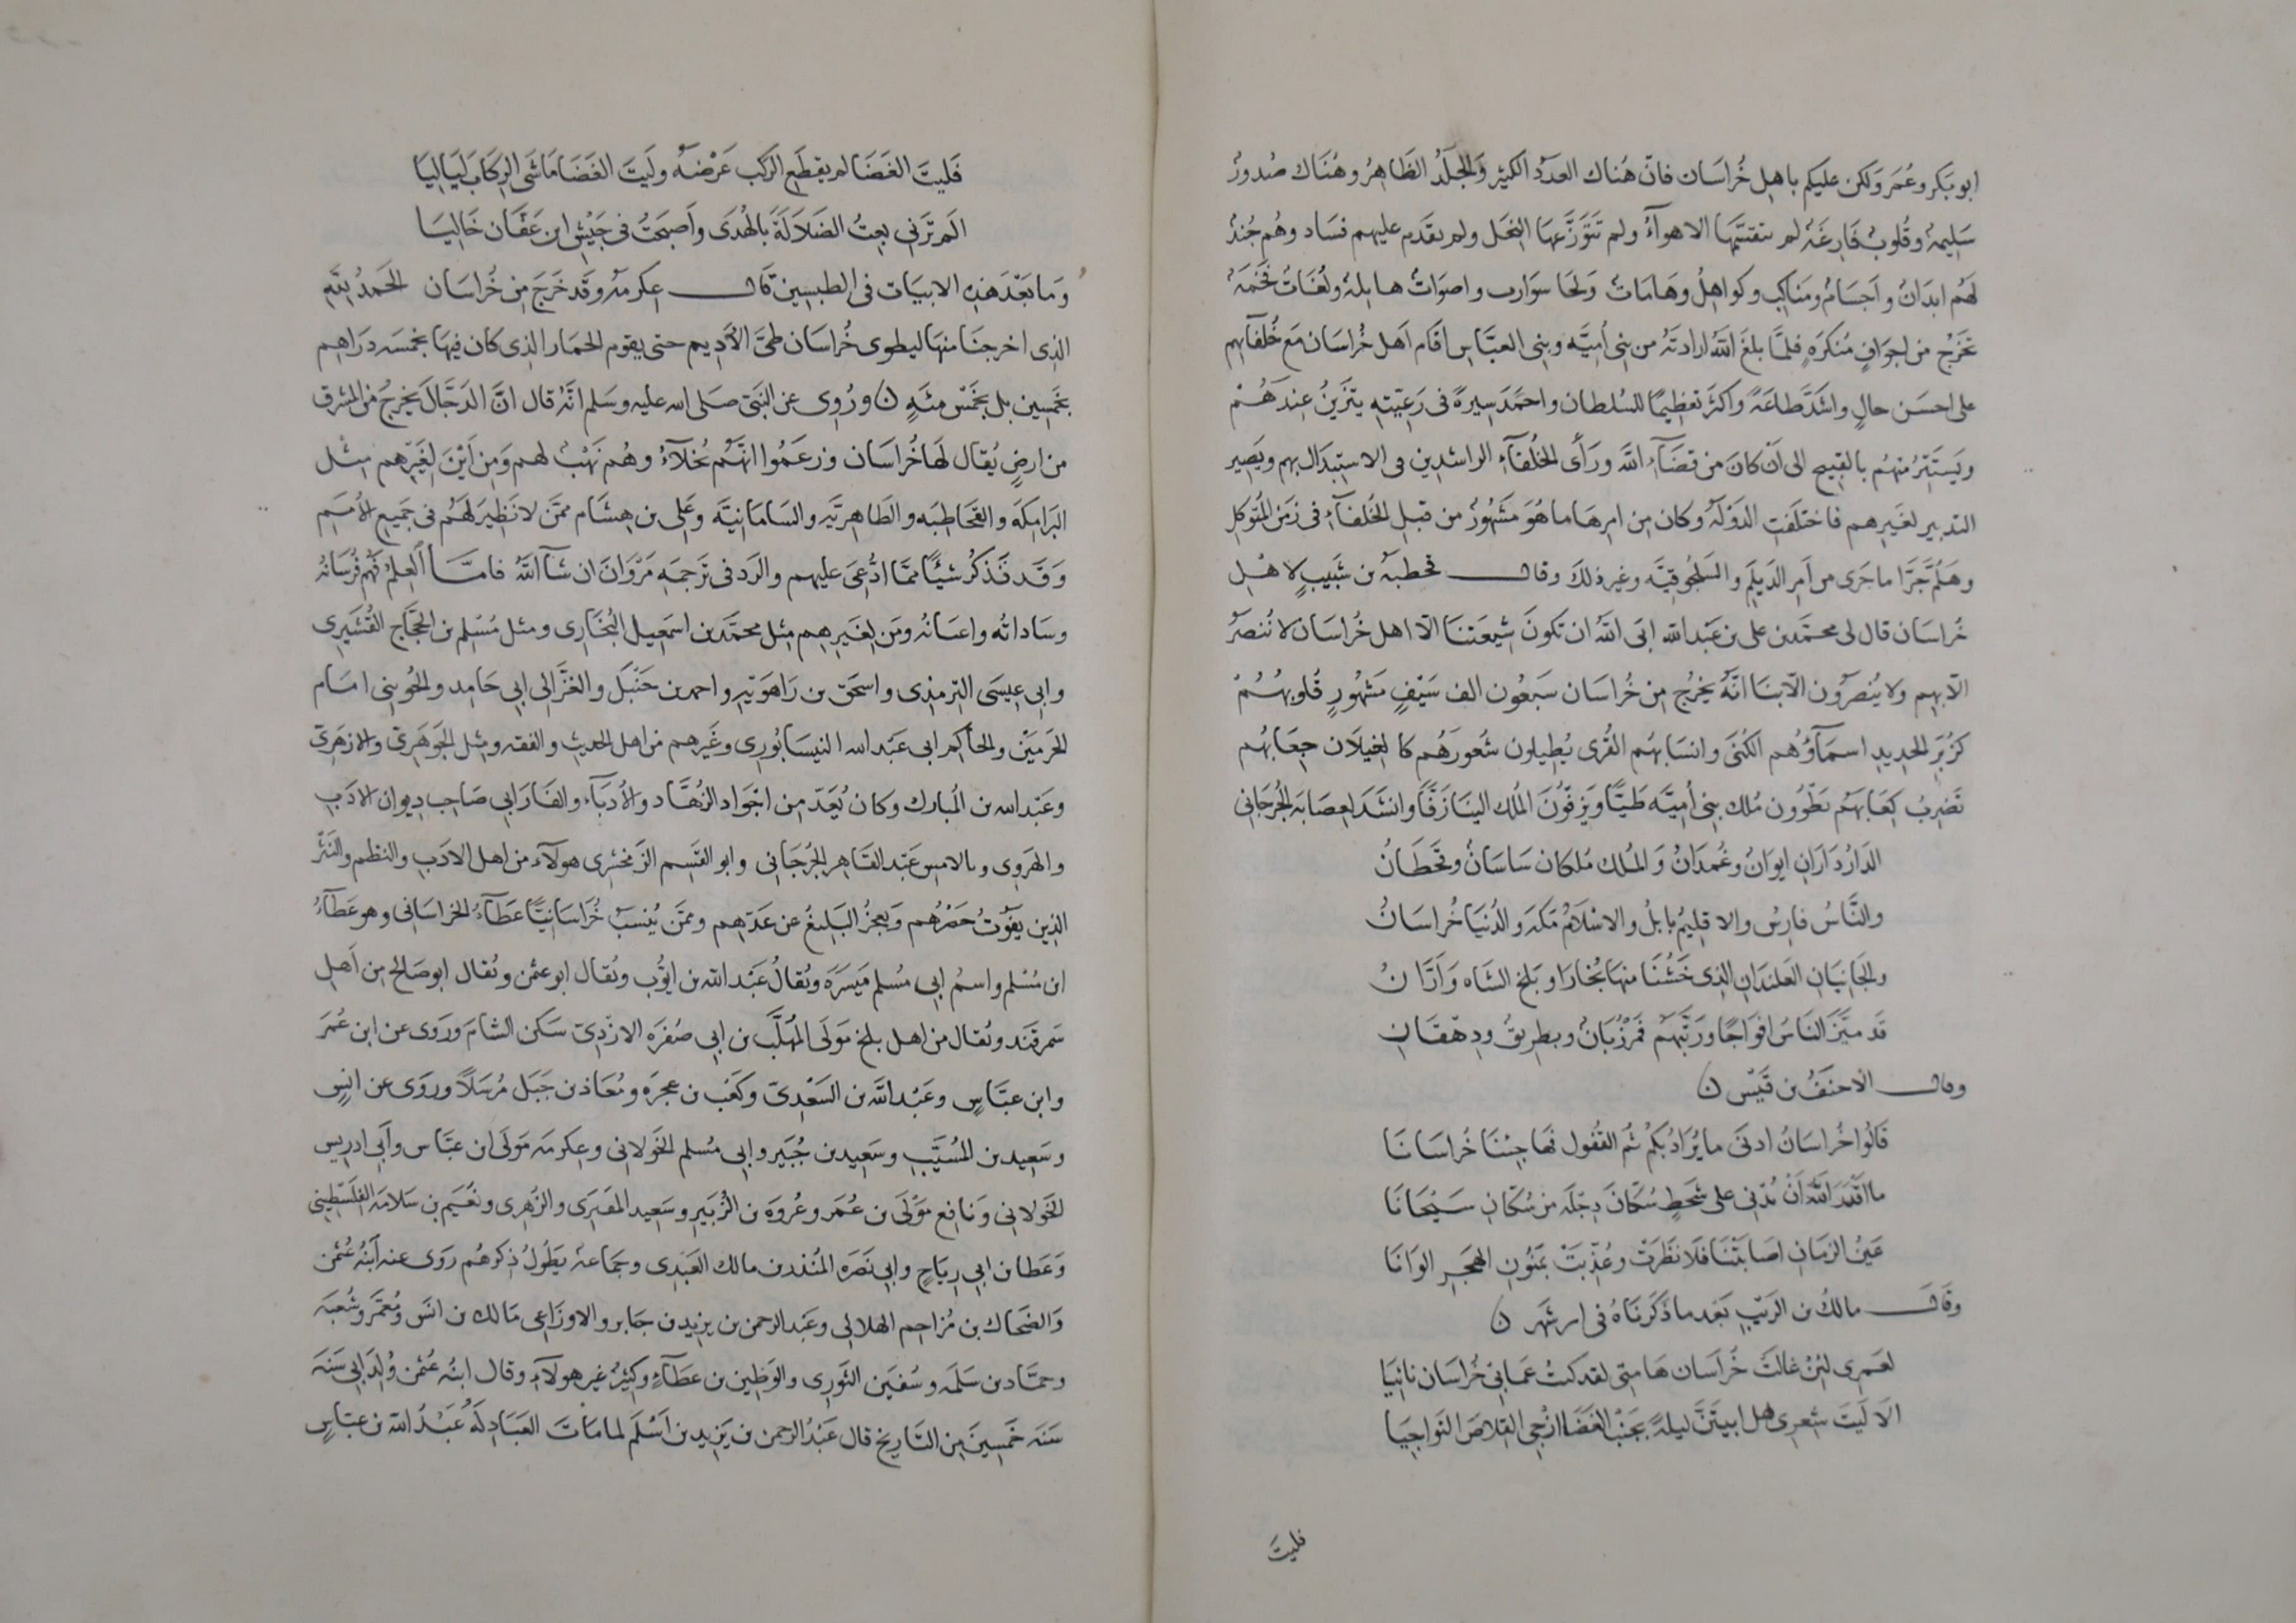 ابو بَكر وعُمَر ولكن عليكم باهل خُراسَان فانّ هُناك العدَد الكثير والجَلَد الظاهِرُ وهُنَاك صُدورٌ
سَلِيمةٌ وقُلوبٌ فَارِغَةٌ لم تتقسَّمها الاهوآءُ ولم تَتَوَزَّعهَا النِحَل ولم يقدَم عليهم فسَاد وهُم جُندٌ
لهُم ابدَانٌ واَجسَامٌ ومَناكِب وكواهِلُ وهَامَاتٌ ولحَا سوَارب واصوَاتٌ هايلةٌ ولُغَاتٌ فَخمَةٌ
تخرُج من اجوَافٍ مُنكَرَةٍ فلمَّا بلغَ اللّه ارادتَه من بنى اُميَّة وبنى العبَّاس اقَام اَهل خُرَاسَان مَعَ خُلفَآئهم
على احسَن حالٍ واشَدّ طاعَةً واكثر تعظِيمًا للسُلطان واحمَد سِيرةً فى رَعِيّتِهِ يتزَينُ عِندَهُم
ويَستَتِرُ منهُم بالقبِيح الى اَنْ كانَ من قَضَآءِ اللّه ورَأى الخُلفَآءِ الراشدِين فى الاستِبدَال بهم ويَصِير
التدبير لغَيرِهم فاختَلَفتِ الدَولَةُ وكان مِن امرِهَا ما هُوَ مَشهُورٌ من قبل الخُلفآءِ فى زمَن المُتوَكل
وهَلُمّ جَرّا ما جَرى من اَمرِ الدَيلم والسَلجُوقيَّة وغير ذلكَ وقال قحطبَة بن شَبِيبٍ لاهل
خُراسَان قال لى محمّد بن على بن عَبد اللّه ابَى اللّه ان تكونَ شيعَتنَا الّا اهل خُراسَان لا نُنصَرُ
الّا بهم ولا يُنصَرُون الّا بنَا انّه يخرُج مِن خُراسَان سَبعُون الف سَيْفٍ مَشهُورٍ قُلوبهُمْ
كزُبَر الحدِيدِ اسمَآؤُهُم الكُنَى وانسَابهُم القُرى يُطِيلون شُعورَهُم كالغِيلَان جِعَابهُم
تضرِبُ كِعَابَهُم يَطوُون مُلك بنِى اُميَّة طَيًّا ويَزِفّونَ المُلك الينَا زَفًّا وانشَد لعِصَابَة الجُرجَانِى
الدَارُ دَارَانِ ايوَانٌ وغُمدَانٌ وَالمُلك مُلكان سَاسَانٌ وقَحطَانُ
والنَّاسُ فارِسُ والاقلِيمُ بابلُ والاسْلَامُ مَكَة والدُنيَا خُراسَانُ
والجَانِبَانِ العَلَندَانِ الذى خَشُنَا منهَا بُخارَا وبَلخ الشَاه وَارَّانُ
قَد ميَّزَ النَاسُ افوَاجًا ورَتَّبَهُم فَمرزُبَانٌ وبِطرِيقٌ ودِهقَانُ
وقال الاحنَفُ بن قَيْس ن
قَالُوا خُراسَانُ ادنَى ما يُرَادُ بكُمْ ثُمّ القُفول فهَا جِئنَا خُراسَانَا
ما اقْدَرَ اللّه اَنْ يُدْنِى على شَحَطٍ سُكّانَ دِجْلَة مِن سُكّانِ سَيْحَانَا
عَينُ الزمَانِ اصَابتْنَا فلَا نظَرَتْ وعُذّبَتْ بفنُونِ الهَجرِ الوَانَا
وقَال مالكُ بن الرَيْبِ بَعْد ما ذكَرنَاهُ فى ابرشَهر ن
لعَمرِى لئِنْ غالَتْ خُرَاسَان هَامتِى لقد كنتُ عَن بَابَى خُراسَان نَائيَا
الَا لَيتَ شِعرِى هل ابيتَنّ ليلةً بجَنْبِ الغَضَا ازْجِى القِلاصَ النَواجِيَا
فليتَ
فَليتَ الغَضَا لم يقطَعِ الركب عَرْضَهُ ولَيتَ الغَضَا مَاشَى الرِكَابَ ليَاليَا
الَم ترَنِى بِعتُ الضَلَالَةَ بالهُدَى واَصبَحتُ فى جَيْشِ ابن عَفّان غَازِيَا
وَمَا بَعْدَ هَذِهِ الابيَات فى الطبسِين قَال عِكرمَة وقَد خَرَجَ مِن خُرَاسَان الحَمدُ للّهِ
الذِى اخرجنَا منهَا ليطوى خُراسَان طىَّ الأَدِيم حتى يقوم الحمَار الذِى كان فيهَا بخمسَة درَاهم
بخَمسِين بل بخَمْس مئَةٍ ن ورُوِى عن النبَىّ صَلى الله عليه وسَلم انّهُ قال انَّ الدَجّالَ يخرجُ من المشرق
من ارضٍ يُقال لهَا خُرَاسَان وزعَمُوا انّهُم بُخلَآءُ وهُم نَهْبٌ لهم وَمِن اَيْنَ لغَيرهم مِثل
البَرَامِكَة والقَحَاطِبَة والطَاهِريَّة والسَامَانِيَّة وعَلِى بن هِشَام ممَّن لا نَظِيرَ لهُم فى جَميع الأُمَم
وَقَد نَذكُر شيئًا ممَّا ادُّعِىَ عليهم والرَد فى تَرجمَة مَرْوَانَ ان شَآ اللّهُ فامّا العِلمُ فهُم فُرسَانُه
وسَادَاتُه واعيَانُه ومِن لغَيرِهِم مِثل محمَّد بن اسمَعِيل البُخَارِى ومثل مُسْلم بن الحَجَّاج القُشَيرِى
وابى عِيسَى الترمِذِى واسحَق بن رَاهوَيْهِ واحمد بن حَنْبَل والغَزَّالِى ابى حَامِد والجُوَينِى امَام
الحَرمَيْن والحَاكِم ابى عَبْد الله النيسَابُورِى وغَيرهم من اهل الحدِيثِ والفقه ومِثل الجَوهَرِىّ والازهَرِىّ
وعَبْد الله بن المُبارك وكان يُعَدّ مِن اجْوَاد الزُهَّاد والأُدبَآء والفَارَابِى صَاحِب دِيوان الادَبِ
والهرَوِى وبالامس عَبْد القَاهِر الجُرْجَانِى وابو القَسِم الزَمخشرى هولآءِ من اهل الادَبِ والنظم والنَثر
الذِين يفَوتُ حَصْرُهُم ويعجزُ البَلِيغُ عن عَدّهِم وممَّن يُنسَبُ خُرَاسَانِيًّا عَطَآءُ الخرَاسَانى وهو عَطَآءُ
ابن مُسْلم واسمُ ابى مُسلم مَيسَرَة ويُقالُ عَبْد اللّه بن ايّوب ويُقال ابو عثمن ويُقال ابو صَالح مِن اَهل
سَمرقَند ويُقال من اهل بلخ مَولَى المُهَلَّب بن ابِى صُفرَة الازْدِىّ سَكن الشامَ ورَوَى عن ابن عُمَرَ
وابن عبَّاسٍ وعَبْد اللّه بن السَعْدِىّ وكَعْب بن عجرَة ومُعَاذ بن جَبَل مُرسَلًا ورَوَى عن انسٍ
وسَعِيد بن المُسَيَّب وسَعِيد بن جُبَير وابِى مُسلم الخَولانِى وعِكرمَة مَولَى ابن عبَّاس وأَبِى ادرِيس
الخَولانِى ونَافِع مَوْلَى بن عُمَر وعُروَة بن الزُبَير وسَعِيد المَقبَرِى والزُهرى ونُعَيم بن سَلامَة الفلَسطِينِى
وَعَطا بن ابِى رِبَاحٍ وابِى نَضرَة المُنذر بن مالك العَبْدِى وجَمَاعة يَطُولُ ذِكرهُم رَوَى عنه ابْنُه عُثمن
وَالضَحّاك بن مُزاحِم الهلالى وعَبْد الرحمن بن يزيد بن جَابر والاوزَاعِى مَالك بن انَس ومُعمَر وشُعبَة
وحمّاد بن سَلَمَة وسُفيَن الثَورِى والوَضِين بن عطَآءٍ وكثِيرٌ غير هولآءِ وقال ابنُه عُثمن وُلِدَ ابِى سَنَة
سَنَة خَمسِينَ مِن التَارِيخ قال عَبْدُ الرحمن بن يَزِيد بن اَسْلَم لما مَاتَ العَبَادِلَةُ عَبْدُ اللّه بن عبّاسٍ